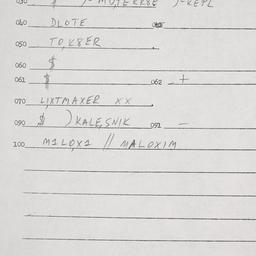 030 $ )- MUTEKK8E )-REPL
040 DLOTE
050 TO,K8ER .
060 $
061 $ 062 +
070 LIXTMAXER XX .
090 $ )KALE,SNIK 091 -
100 M1LO,X1 // MALOXIM